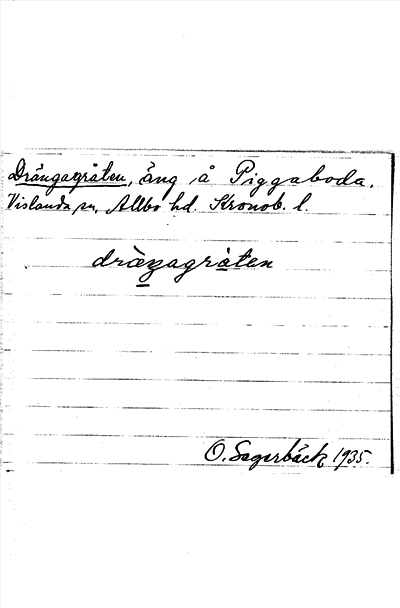 Drängagråten, äng å Piggaboda.
Vislanda sn, Allbo hd. Kronob. l.
dràŋagràten
O. Sagerbäck 1935.